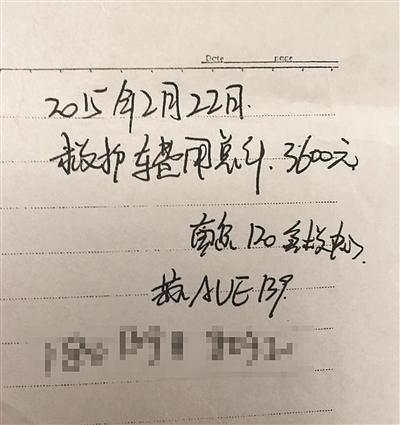 Date page
2015年2月22日.
救护车费用总计.3600元
120急救中心.
AUE139